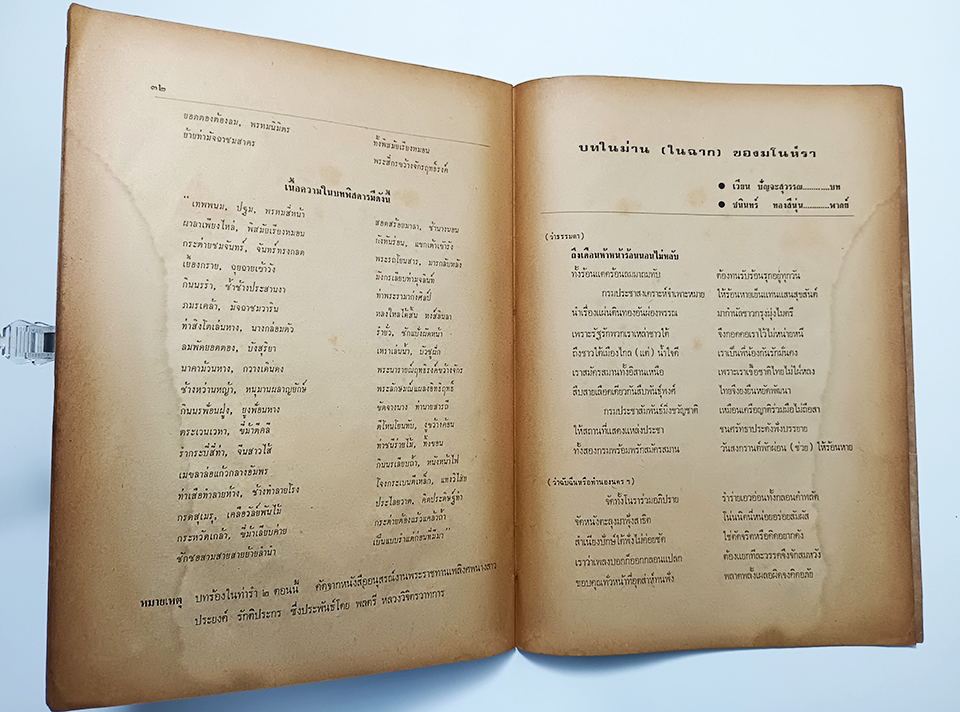 ๓๒
ยอดตองต้องลม, พรหมนิมิตร
ทั้งพิสมัยเรียงหมอน
ย้ายท่ามัจฉาชมสาคร
พระสี่กรขว้างจักรฤทธิรงค์
เนื้อความในบทพิสดารมีดังนี้
" เทพพนม, ปฐม, พรหมสี่หน้า
สอดสร้อยมาลา, ช้านางนอน
ผาลาเพียงไหล่, พิสมัยเรียงหมอน
กังหันร่อน, แขกเต้าเข้ารัง
กระต่ายชมจันทร์, จันทร์ทรงกลด
พระรถโยนสาร, มารกลับหลัง
เยื้องกราย, ฉุยฉายเข้าวัง
มังกรเลียบท่ามุจลินท์
กินนรรำ, ซ้ำช้างประสานงา
ท่าพระรามาก่งศิลป์
ภมรเคล้า, มัจฉาชมวาริน
หลงใหลได้สิ้น หงส์ลินลา
ท่าสิงโตเล่นหาง, นางกล่อมตัว
รำยั่ว, ชักแป้งผัดหน้า
ลมพัดยอดตอง, บังสุริยา
เหราเล่นน้ำ, บัวชูฝัก
นาคาม้วนหาง, กวางเดินดง
พระนารายณ์ฤทธิรงค์ขว้างจักร
ช้างหว่านหญ้า, หนุมานผลาญยักษ์
พระลักษมณ์แผลงอิทธิฤทธิ์
กินนรฟ้อนฝูง, ยูงฟ้อนหาง
ขัดจางนาง ท่านายสารถี
ตระเวนเวหา, ขี่ม้าตีคลี
ตีโทนโยนทับ, งูขว้างค้อน
รำกระบี่สี่ท่า, จีนสาวไส้
ท่าชะนีร่ายไม้, ทิ้งขอน
เมขลาล่อแก้วกลางอัมพร
กินนรเลียบถ้ำ, หนังหน้าไฟ
ท่าเสือทำลายห้าง, ช้างทำลายโรง
โจงกระเบนตีเหล็ก, แทงวิไสย
กรดสุเมรุ, เคลือวัลย์พันไม้
ประไลยวาต, คิดประดิษฐ์ทำ
กระหวัดเกล้า, ขี่ม้าเลียบค่าย
กระต่ายต้องแร้วแคล้วถ้ำ
ชักซอสามสายสายย้ายลำนำ
เป็นแบบรำแต่ก่อนที่มีมา"
หมายเหตุ บทร้องในท่ารำ ๒ ตอนนี้ คัดจากหนังสืออนุสรณ์งานพระราชทานเพลิงศพนางสาว
ประยงค์ รักติประกร ซึ่งประพันธ์โดย พลตรี หลวงวิจิตรวาทการ
บทในม่าน (ในฉาก) ของมโนห์รา
● เวียน ปัญจะสุวรรณ............บท
● ชนินทร์ ทองสีนุ่น............พากย์
(ว่าธรรมดา)
ถึงเดือนห้าหน้าร้อนนอนไม่หลับ
ทั้งร้อนแดดร้อนลมผสมทับ
ต้องทนรับร้อนรุกอยู่ทุกวัน
กรมประชาสงเคราะห์จำเพาะหมาย
ให้ร้อนหายเย็นแทนแสนสุขสันต์
นำเรื่องแผ่นดินทองอันผ่องพรรณ
มากำนัลชาวกรุงมุ่งไมตรี
เพราะรัฐรักพวกเราเหล่าชาวใต้
จึงกอดคอเราไว้ไม่หน่ายหนี
ถึงชาวใต้เมืองไกล (แต่) น้ำใจดี
เราเป็นพี่น้องกันรักมั่นคง
เราสมัครสมานทั้งอีสานเหนือ
เพราะเราเชื้อชาติไทยไม่ใหลหลง
สืบสายเลือดเดียวกันสืบพันธุ์พงศ์
ไทยจึงยงยืนหยัดพัฒนา
กรมประชาสัมพันธ์มิ่งขวัญชาติ
เหมือนเครือญาติร่วมมือไม่ถือสา
ให้สถานที่แสดงแหล่งประชา
ชนศรัทธาประดังฟังบรรยาย
ทั้งสองกรมพร้อมพรักสมัครสมาน
วันสงกรานต์พักผ่อน (ช่วย) ให้ร้อนหาย
(ว่าฉับฉันหรือทำนองนคร ฯ)
จัดทั้งโนราร่วมอภิปราย
รำร่ายเยวอ่อนทั้งกลอนคำทลัด
จัดหนังตะลุงมาพุ่งสาธิต
โน่นนิดนี่หน่อยอร่อยสัมผัส
สำเนียงปักษ์ใต้ฟังไม่ค่อยชัด
ใช่ดัดจริตหรือคิดอยากดัง
เราว่าเพลงบอกก็ออกกลอนแปลก
ต้องแยกทีละวรรคจึงจักสมหวัง
ขอบคุณทั่วหน้าที่อุตส่าห์ทนฟัง
พลาดพลั้งเผลอผิดจงคิดอภัย